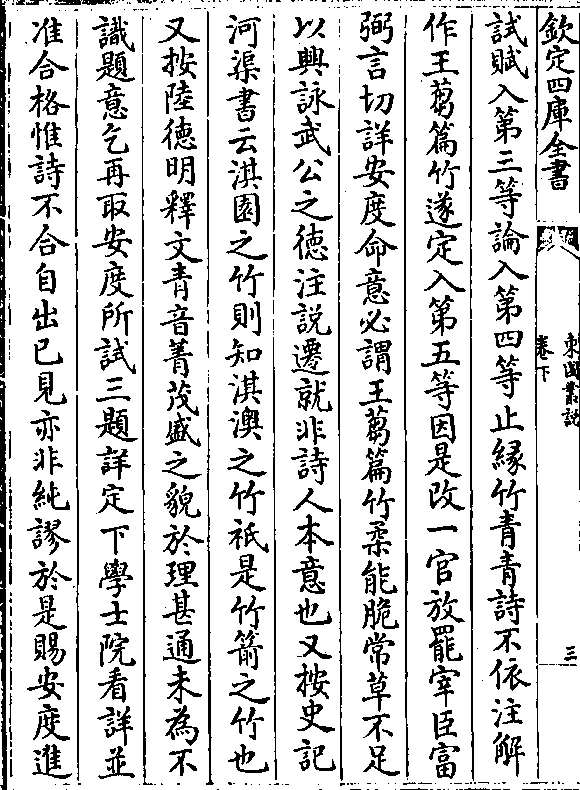 欽定四庫全書
東園叢說
卷下
三
試賦入第三等論入第四等止緣竹青青詩不依注解
作王芻篇竹遂定入第五等因是改一官放罷宰臣富
弼言切詳安度命意必謂王芻篇竹柔能脆常草不足
以興詠武公之德注說遷就非詩人本意也又按史記
河渠書云淇園之竹則知淇澳之竹祇是竹箭之竹也
又按陸德明釋文青音菁茂盛之貌於理甚通未為不
識題意乞再取安度所試三題詳定下學士院看詳並
准合格惟詩不合自出已見亦非純謬於是賜安度進